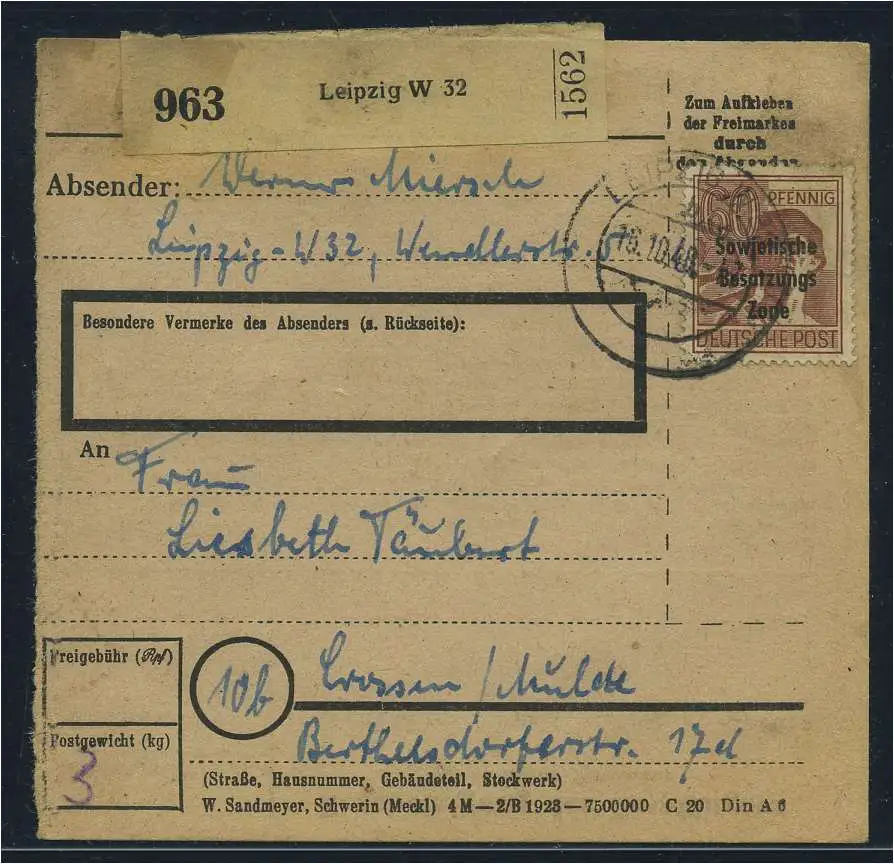 963
Leipzig W 32
1562
Zum Aufkleben
der Freimarken
durch
den Absender
Absender: Werner Miersch
Leipzig-W32, Wendlerstr. 5
60 PFENNIG
Sowjetische
Besatzungs
Zone
DEUTSCHE POST
LEIPZIG
18.10.48
Besondere Vermerke des Absenders (s. Rückseite):
An Frau
Liesbeth Täubert
Freigebühr (Rpf)
10b Crossen / Mulde
Postgewicht (kg)
3
Berthelsdorferstr. 17d
(Straße, Hausnummer, Gebäudeteil, Stockwerk)
W. Sandmeyer, Schwerin (Meckl) 4 M—2/B 1923—7500000 C 20 Din A 6